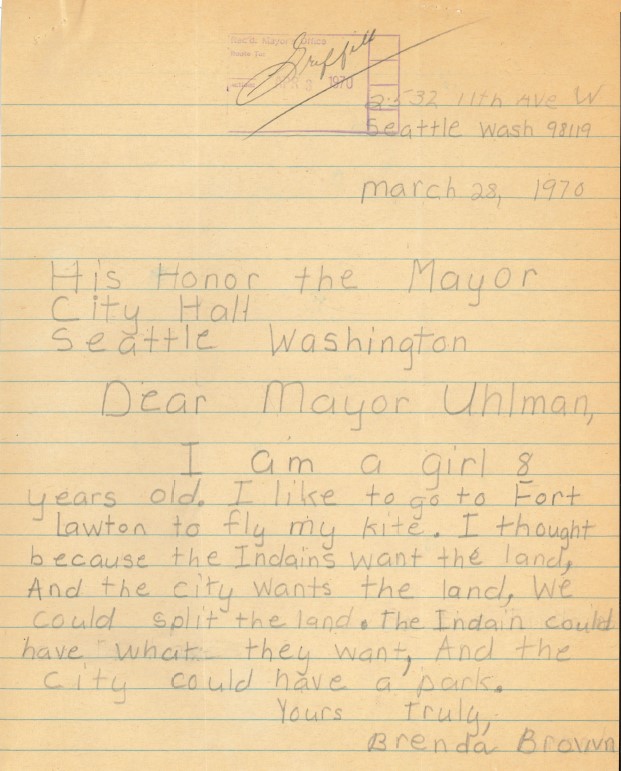 Rec'd. Mayor's Office
Route To:
1970
2532 11th Ave W
Seattle Wash 98119
march 28, 1970
His Honor the Mayor
City Hall
Seattle Washington
Dear Mayor Uhlman,
I am a girl 8
years old. I like to go to Fort
Lawton to fly my kite. I thought
because the Indains want the land,
And the city wants the land, We
could split the land. The Indain could
have what they want, And the
City could have a park.
Yours Truly,
Brenda Brown